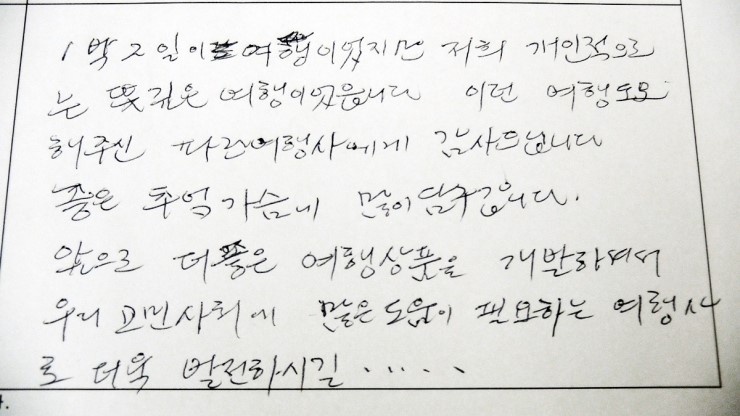 1박2일이 여행이었지만 저희 개인적으로
는 뜻깊은 여행이었읍니다 이런 여행도모
해주신 파란여행사에게 감사드립니다
좋은 추억가슴에 많이담구갑니다.
앞으로 더좋은 여행상품을 개발하셔서
우리 교민사회에 많은도움이 필요하는 여행사
로 더욱 발전하시길 .....